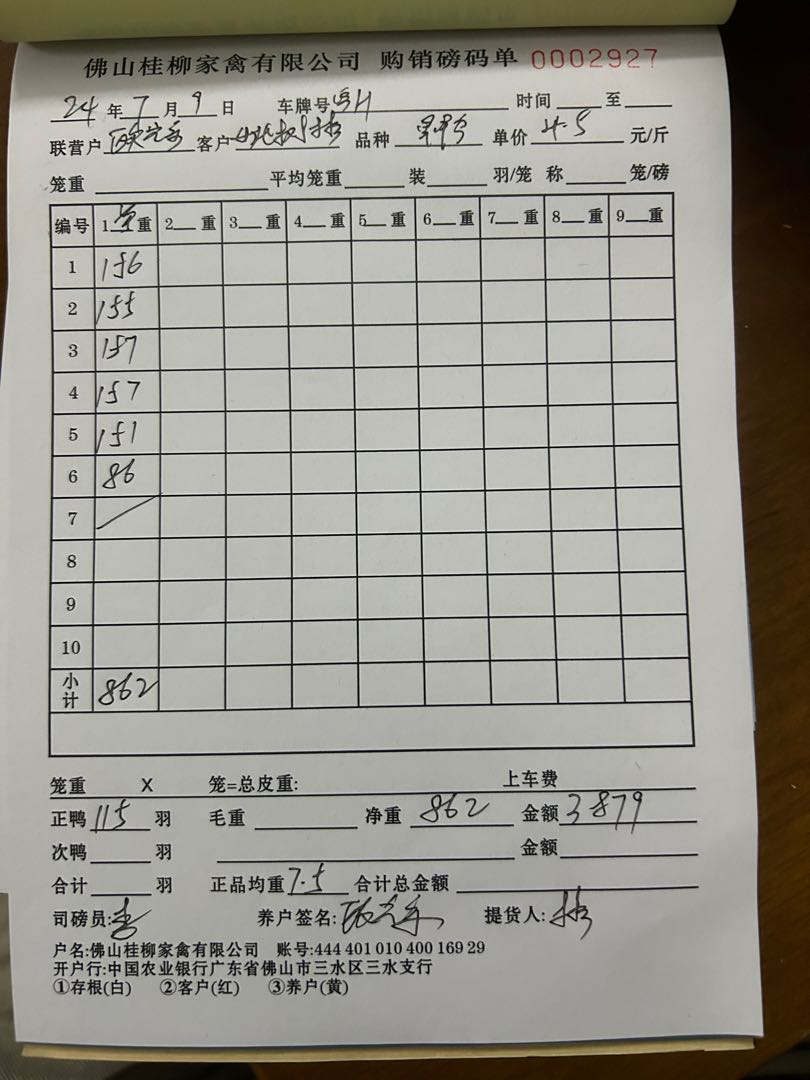 佛山桂柳家禽有限公司 购销磅码单 0002927
24 年 7 月 9 日 车牌号 时间 至
联营户 客户 品种 单价 4.5 元/斤
笼重 平均笼重 装 羽/笼 称 笼/磅
编号 1 重 2 重 3 重 4 重 5 重 6 重 7 重 8 重 9 重
1 156
2 155
3 157
4 157
5 151
6 86
7
8
9
10
小计 862
笼重 X 笼=总皮重: 上车费
正鸭 115 羽 毛重 净重 862 金额 3879
次鸭 羽 金额
合计 羽 正品均重 7.5 合计总金额
司磅员:李 养户签名: 提货人:
户名:佛山桂柳家禽有限公司 账号:444 401 010 400 169 29
开户行:中国农业银行广东省佛山市三水区三水支行
①存根(白) ②客户(红) ③养户(黄)